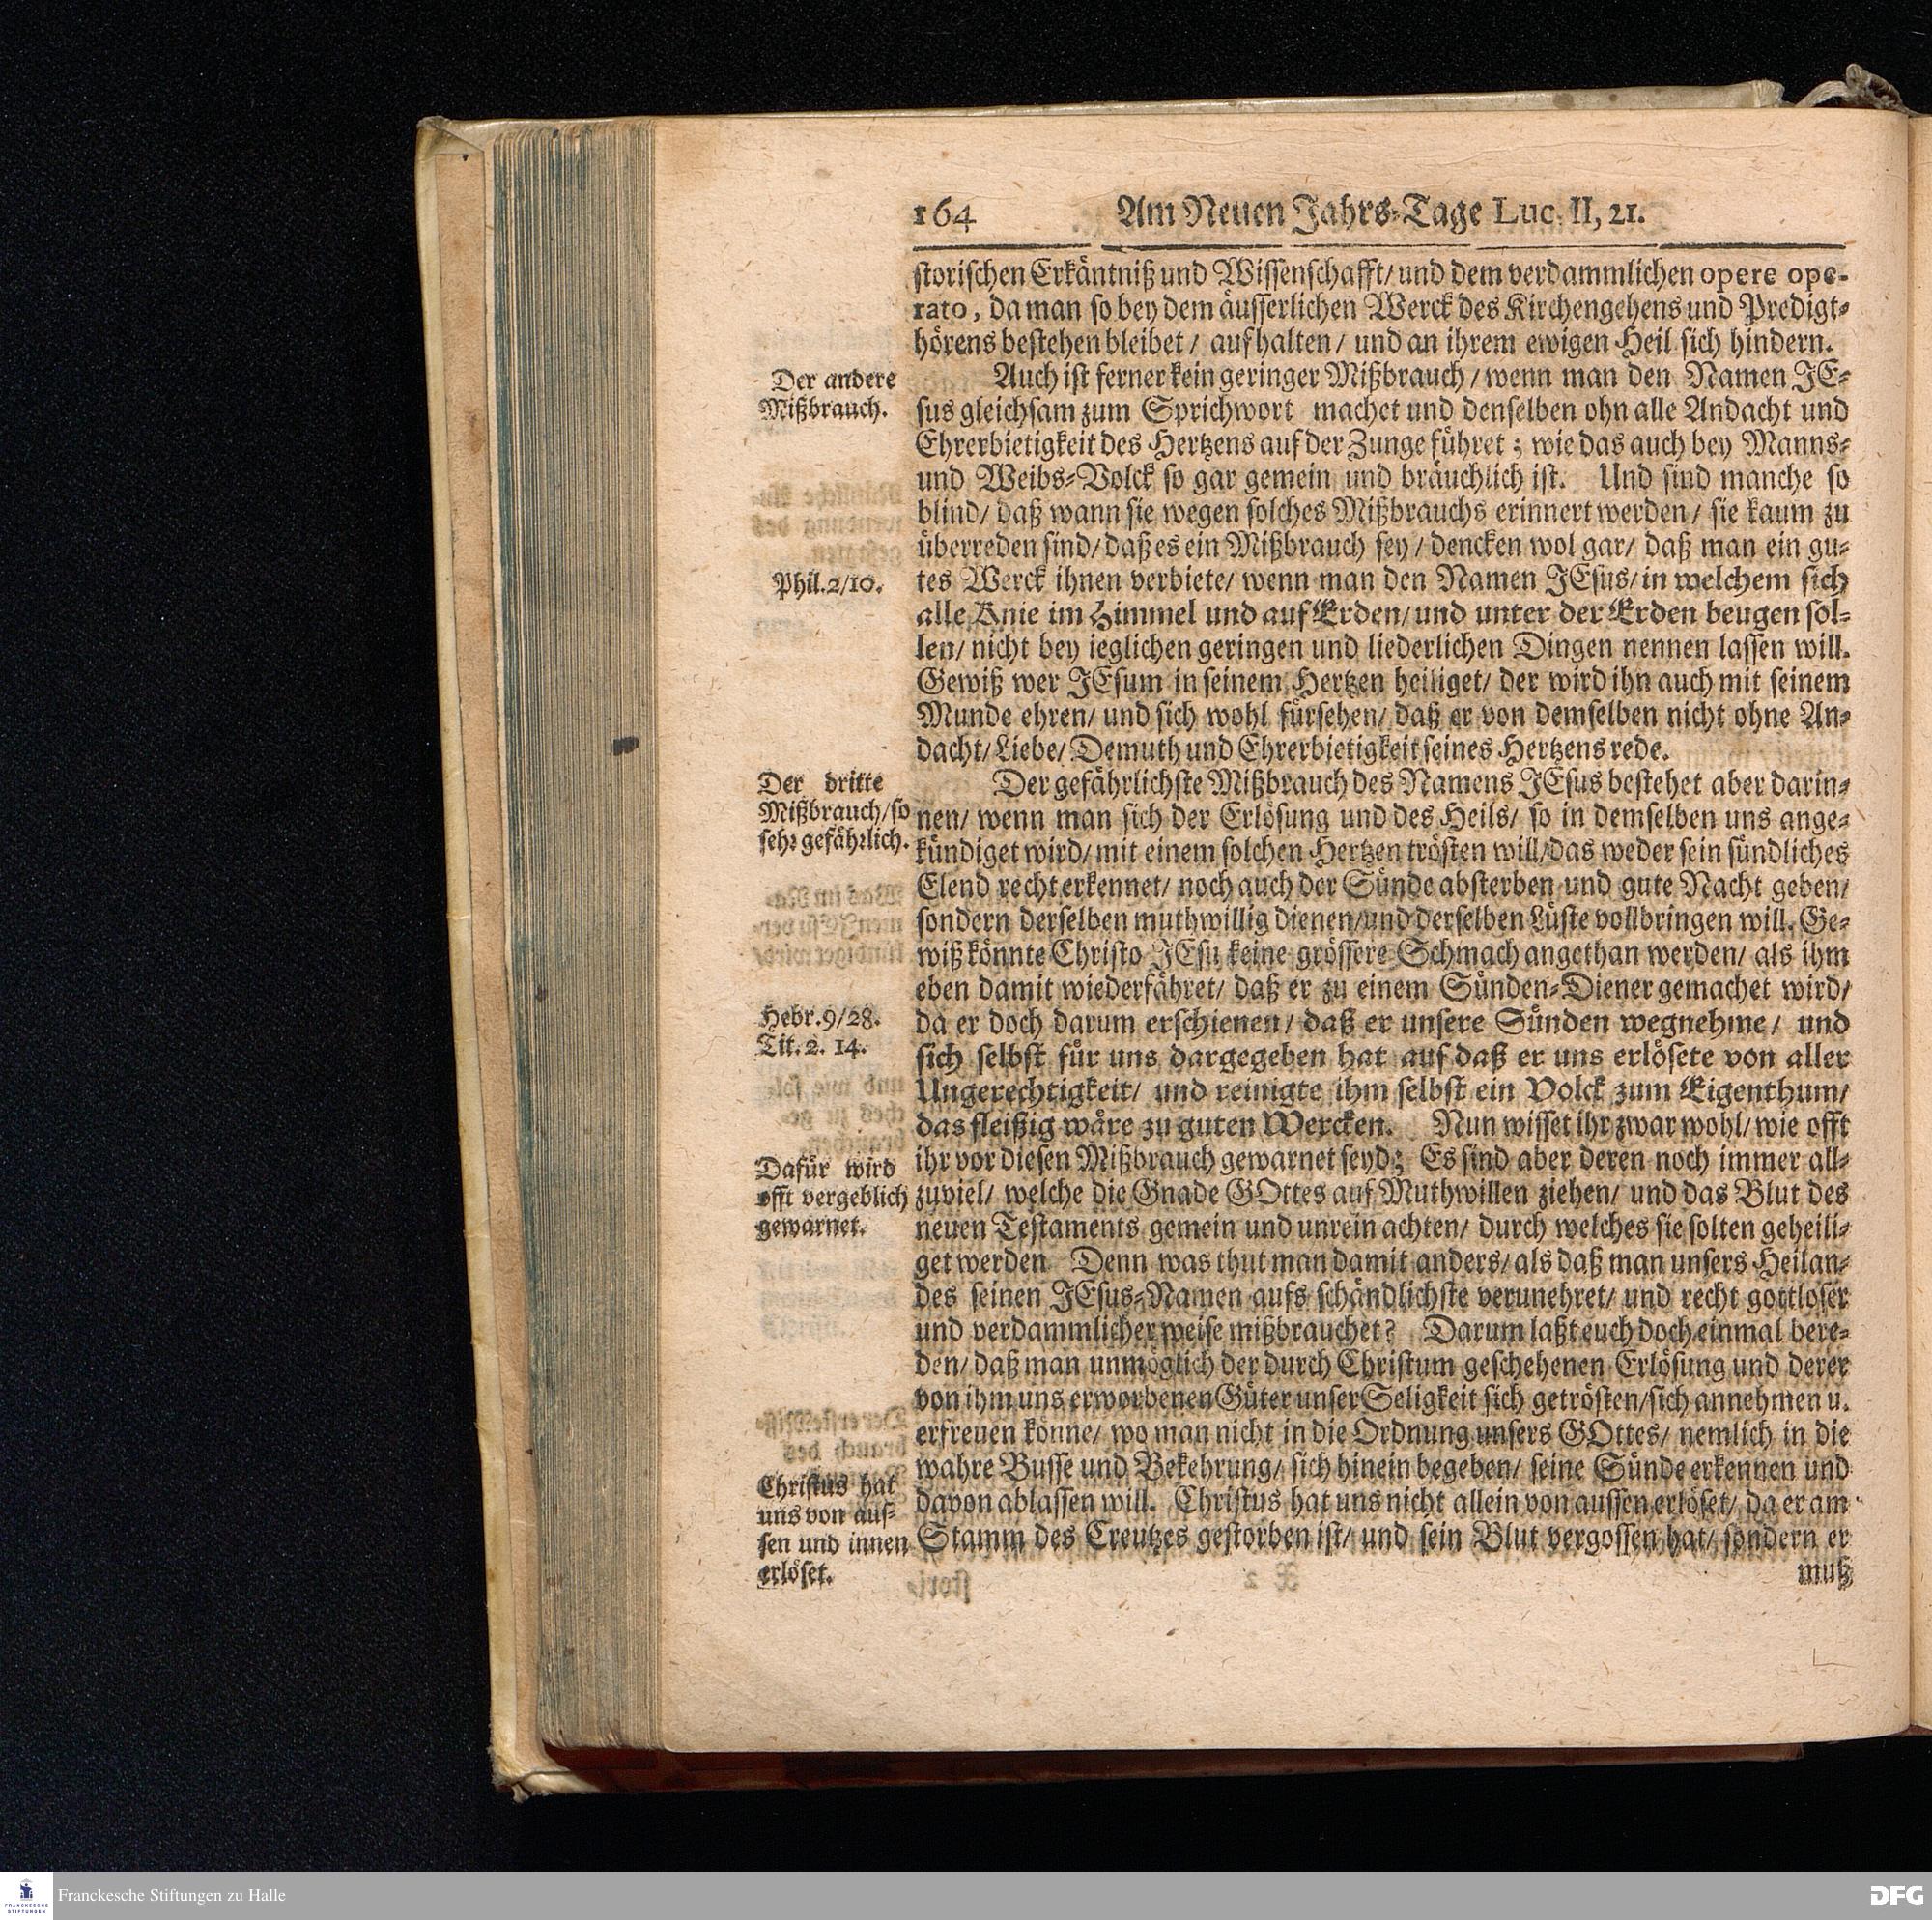 164 Am Neuen Jahrs-Tage Luc. II, 21.
storischen Erkäntniß und Wissenschafft/ und dem verdammlichen opere ope-
rato, da man so bey dem äusserlichen Werck des Kirchengehens und Predigt-
hörens bestehen bleibet/ aufhalten/ und an ihrem ewigen Heil sich hindern.
Der andere
Mißbrauch.
Auch ist ferner kein geringer Mißbrauch/ wenn man den Namen JE-
sus gleichsam zum Sprichwort machet und denselben ohn alle Andacht und
Ehrerbietigkeit des Hertzens auf der Zunge führet; wie das auch bey Manns-
und Weibs-Volck so gar gemein und bräuchlich ist. Und sind manche so
blind/ daß wann sie wegen solches Mißbrauchs erinnert werden/ sie kaum zu
überreden sind/ daß es ein Mißbrauch sey/ dencken wol gar/ daß man ein gu-
Phil. 2/10.
tes Werck ihnen verbiete/ wenn man den Namen JEsus/ in welchem sich
alle Knie im Himmel und auf Erden/ und unter der Erden beugen sol-
len/ nicht bey ieglichen geringen und liederlichen Dingen nennen lassen will.
Gewiß wer JEsum in seinem Hertzen heiliget/ der wird ihn auch mit seinem
Munde ehren/ und sich wohl fürsehen/ daß er von demselben nicht ohne An-
dacht/ Liebe/ Demuth und Ehrerbietigkeit seines Hertzens rede.
Der dritte
Mißbrauch/ so
sehr gefährlich.
Der gefährlichste Mißbrauch des Namens JEsus bestehet aber darin-
nen/ wenn man sich der Erlösung und des Heils/ so in demselben uns ange-
kündiget wird/ mit einem solchen Hertzen trösten will/ das weder sein sündliches
Elend recht erkennet/ noch auch der Sünde absterben und gute Nacht geben/
sondern derselben muthwillig dienen/ und derselben Lüste vollbringen will. Ge-
wiß könnte Christo JEsu keine grössere Schmach angethan werden/ als ihm
eben damit wiederfähret/ daß er zu einem Sünden-Diener gemachet wird/
Hebr. 9/28.
Tit. 2. 14.
da er doch darum erschienen/ daß er unsere Sünden wegnehme/ und
sich selbst für uns dargegeben hat auf daß er uns erlösete von aller
Ungerechtigkeit/ und reinigte ihm selbst ein Volck zum Eigenthum/
das fleißig wäre zu guten Wercken. Nun wisset ihr zwar wohl/ wie offt
Dafür wird
offt vergeblich
gewarnet.
ihr vor diesen Mißbrauch gewarnet seyd; Es sind aber deren noch immer all-
zuviel/ welche die Gnade GOttes auf Muthwillen ziehen/ und das Blut des
neuen Testaments gemein und unrein achten/ durch welches sie solten geheili-
get werden Denn was thut man damit anders/ als daß man unsers Heilan-
des seinen JEsus-Namen aufs schändlichste verunehret/ und recht gottloser
und verdammlicher weise mißbrauchet? Darum laßt euch doch einmal bere-
den/ daß man unmöglich der durch Christum geschehenen Erlösung und derer
von ihm uns erworbenen Güter unser Seligkeit sich getrösten/ sich annehmen u.
erfreuen könne/ wo man nicht in die Ordnung unsers GOttes/ nemlich in die
wahre Busse und Bekehrung/ sich hinein begeben/ seine Sünde erkennen und
Christus hat
uns von aus-
sen und innen
erlöset.
davon ablassen will. Christus hat uns nicht allein von aussen erlöset/ da er am
Stamm des Creutzes gestorben ist/ und sein Blut vergossen hat/ sondern er
muß
Franckesche Stiftungen zu Halle
FRANCKESCHE
STIFTUNGEN
DFG